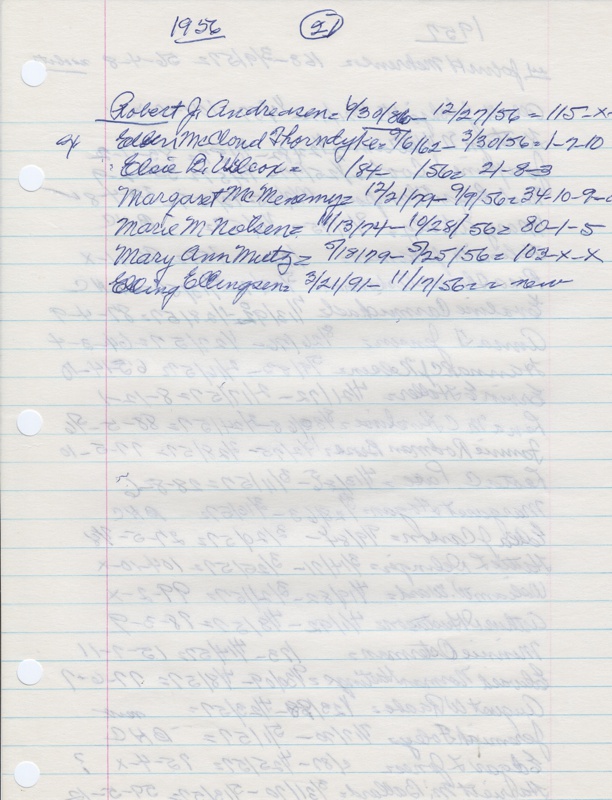 1956 21
Robert J. Andreasen = 6/30/86 - 12/27/56 = 115-x-
x McCloud Thorndyke = 9/6/62 - 3/30/56 = 1-7-10
Elsie D. Wilcox = 184- 156 = 21-8-3
Margaret McMenemy = 12/21/79 - 9/9/56 = 34-10-9-
Marie M Nobsen = 11/13/74 - 10/28/56 = 80-1-5
Mary Ann Mietz = 5/18/79 - 5/25/56 = 103-x-x
Elling Ellingsen = 3/21/91 - 11/17/56 = = new